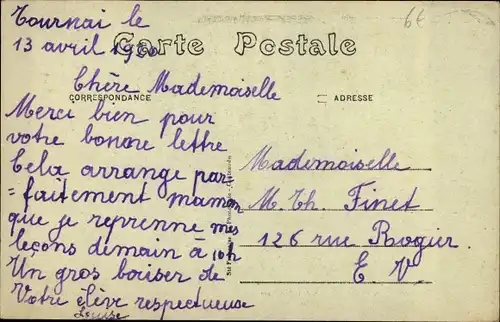 Tournai le
13 avril 19
Carte Postale
Chère Mademoiselle
CORRESPONDANCE
ADRESSE
Merci bien pour
votre bonne lettre
Cela arrange par
=faitement maman
que je reprenne mes
leçons demain à 10h
Un gros baiser de
Votre élève respectueuse
Louise
Mademoiselle
M. Th. Finet
126 rue Rogier.
E V.